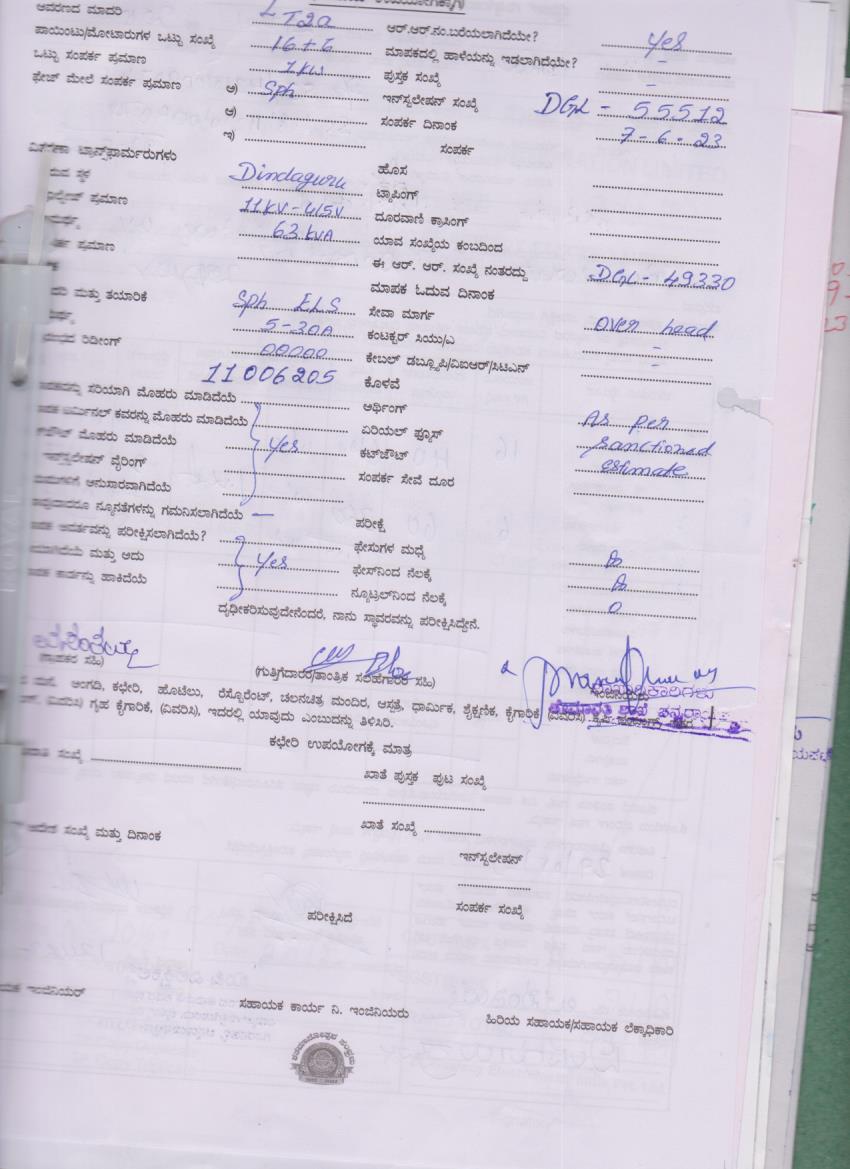 ಆವರಣದ ಮಾದರಿ LT2a ಆರ್.ಆರ್.ನಂ.ಬರೆಯಲಾಗಿದೆಯೇ? yes
ಪಾಯಿಂಟು/ಮೋಟಾರುಗಳ ಒಟ್ಟು ಸಂಖ್ಯೆ 16+6 ಮಾಪಕದಲ್ಲಿ ಹಾಳೆಯನ್ನು ಇಡಲಾಗಿದೆಯೇ? -
ಒಟ್ಟು ಸಂಪರ್ಕ ಪ್ರಮಾಣ 1KW ಪುಸ್ತಕ ಸಂಖ್ಯೆ -
ಫೇಜ್ ಮೇಲೆ ಸಂಪರ್ಕ ಪ್ರಮಾಣ ಅ) Sph ಇನ್‌ಸ್ಟಲೇಷನ್ ಸಂಖ್ಯೆ DGL - 55512
ಆ) ಸಂಪರ್ಕ ದಿನಾಂಕ 7-6-23
ಇ) ಸಂಪರ್ಕ
ಟ್ರಾನ್ಸ್‌ಫಾರ್ಮರುಗಳು ಹೊಸ
ಸ್ಥಳ Dindaguru ಟ್ಯಾಪಿಂಗ್
ಪ್ರಮಾಣ 11KV-415V ದೂರವಾಣಿ ಕ್ರಾಸಿಂಗ್
63KVA ಯಾವ ಸಂಖ್ಯೆಯ ಕಂಬದಿಂದ
ಪ್ರಮಾಣ ಈ ಆರ್. ಆರ್. ಸಂಖ್ಯೆ ನಂತರದ್ದು DGL - 49330
ಮಾಪಕ ಓದುವ ದಿನಾಂಕ
ಮತ್ತು ತಯಾರಿಕೆ Sph ELS ಸೇವಾ ಮಾರ್ಗ over head
5-30A ಕಂಟಕ್ಟರ್ ಸಿಯು/ಎ -
ರಿಡೀಂಗ್ 00000 ಕೇಬಲ್ ಡಬ್ಲ್ಯೂಪಿ/ವಿಐಆರ್/ಸಿಟಿಎನ್ -
11006205 ಕೊಳವೆ
ಸರಿಯಾಗಿ ಮೊಹರು ಮಾಡಿದೆಯೆ ಅರ್ಥಿಂಗ್
ಟರ್ಮಿನಲ್ ಕವರನ್ನು ಮೊಹರು ಮಾಡಿದೆಯೆ ಏರಿಯಲ್ ಫ್ಯೂಸ್ As per
ಮೊಹರು ಮಾಡಿದೆಯೆ yes ಕಟ್‌ಔಟ್ sanctioned
ಇನ್‌ಸ್ಟಲೇಷನ್ ವೈರಿಂಗ್ ಸಂಪರ್ಕ ಸೇವೆ ದೂರ estimate
ಅನುಸಾರವಾಗಿದೆಯೆ
ನ್ಯೂನತೆಗಳನ್ನು ಗಮನಿಸಲಾಗಿದೆಯೆ — ಪರೀಕ್ಷೆ
ಪರೀಕ್ಷಿಸಲಾಗಿದೆಯೆ? ಫೇಸುಗಳ ಮಧ್ಯೆ
ಮತ್ತು ಅದು yes ಫೇಸ್‌ನಿಂದ ನೆಲಕ್ಕೆ
ಹಾಕಿದೆಯೆ ನ್ಯೂಟ್ರಲ್‌ನಿಂದ ನೆಲಕ್ಕೆ 0
ದೃಢೀಕರಿಸುವುದೇನೆಂದರೆ, ನಾನು ಸ್ಥಾವರವನ್ನು ಪರೀಕ್ಷಿಸಿದ್ದೇನೆ.
(ಗ್ರಾಹಕರ ಸಹಿ) (ಗುತ್ತಿಗೆದಾರರ/ತಾಂತ್ರಿಕ ಸಲಹೆಗಾರರ ಸಹಿ)
ಮನೆ, ಅಂಗಡಿ, ಕಛೇರಿ, ಹೊಟೆಲು, ರೆಸ್ಟೋರೆಂಟ್, ಚಲನಚಿತ್ರ ಮಂದಿರ, ಆಸ್ಪತ್ರೆ, ಧಾರ್ಮಿಕ, ಶೈಕ್ಷಣಿಕ, ಕೈಗಾರಿಕೆ (ವಿವರಿಸಿ)
ಗೃಹ ಕೈಗಾರಿಕೆ, (ವಿವರಿಸಿ), ಇದರಲ್ಲಿ ಯಾವುದು ಎಂಬುದನ್ನು ತಿಳಿಸಿರಿ.
ಕಛೇರಿ ಉಪಯೋಗಕ್ಕೆ ಮಾತ್ರ
ಸಂಖ್ಯೆ ಖಾತೆ ಪುಸ್ತಕ ಪುಟ ಸಂಖ್ಯೆ
ಖಾತೆ ಸಂಖ್ಯೆ
ಆದೇಶ ಸಂಖ್ಯೆ ಮತ್ತು ದಿನಾಂಕ
ಇನ್‌ಸ್ಟಲೇಷನ್
ಪರೀಕ್ಷಿಸಿದೆ ಸಂಪರ್ಕ ಸಂಖ್ಯೆ
ಇಂಜಿನಿಯರ್ ಸಹಾಯಕ ಕಾರ್ಯ ನಿ. ಇಂಜಿನಿಯರು ಹಿರಿಯ ಸಹಾಯಕ/ಸಹಾಯಕ ಲೆಕ್ಕಾಧಿಕಾರಿ